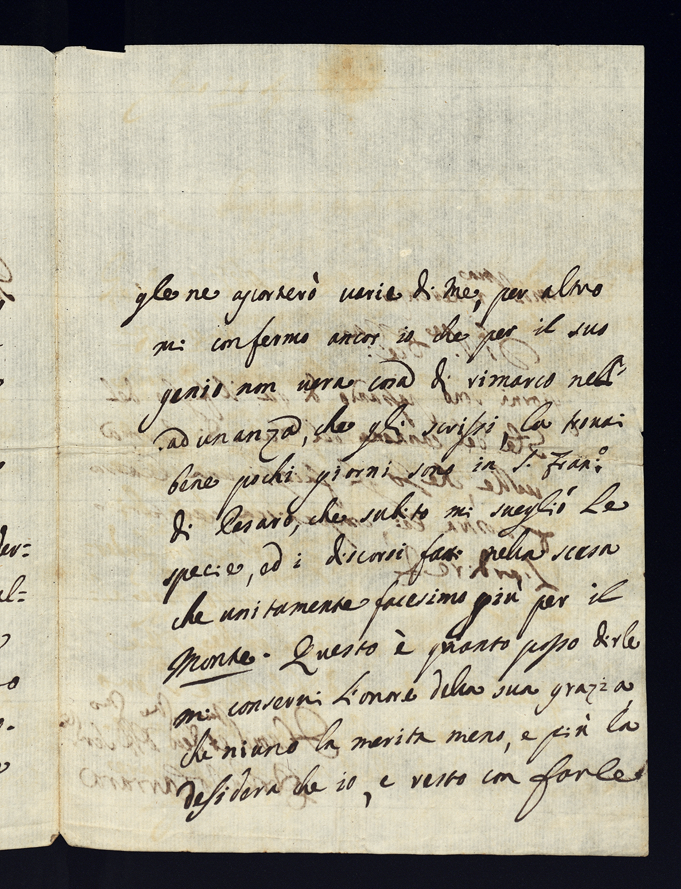 gle ne aporterò varie di me, per altro
mi confermo ancor io che per il suo
genio non vera cosa di rimarco nell'
adunanza, che gli scrissi, la trovai
bene pochi giorni sono in S. Fran.º
di Pesaro, che subito mi svegliò Le
specie, ed i discorsi fatti nella scesa
che unitamente facesimo giù per il
Monte. Questo è quanto posso dirle
mi conservi L'onore della sua grazia
che niuno la merita meno, e più la
desidera che io, e resto con farle